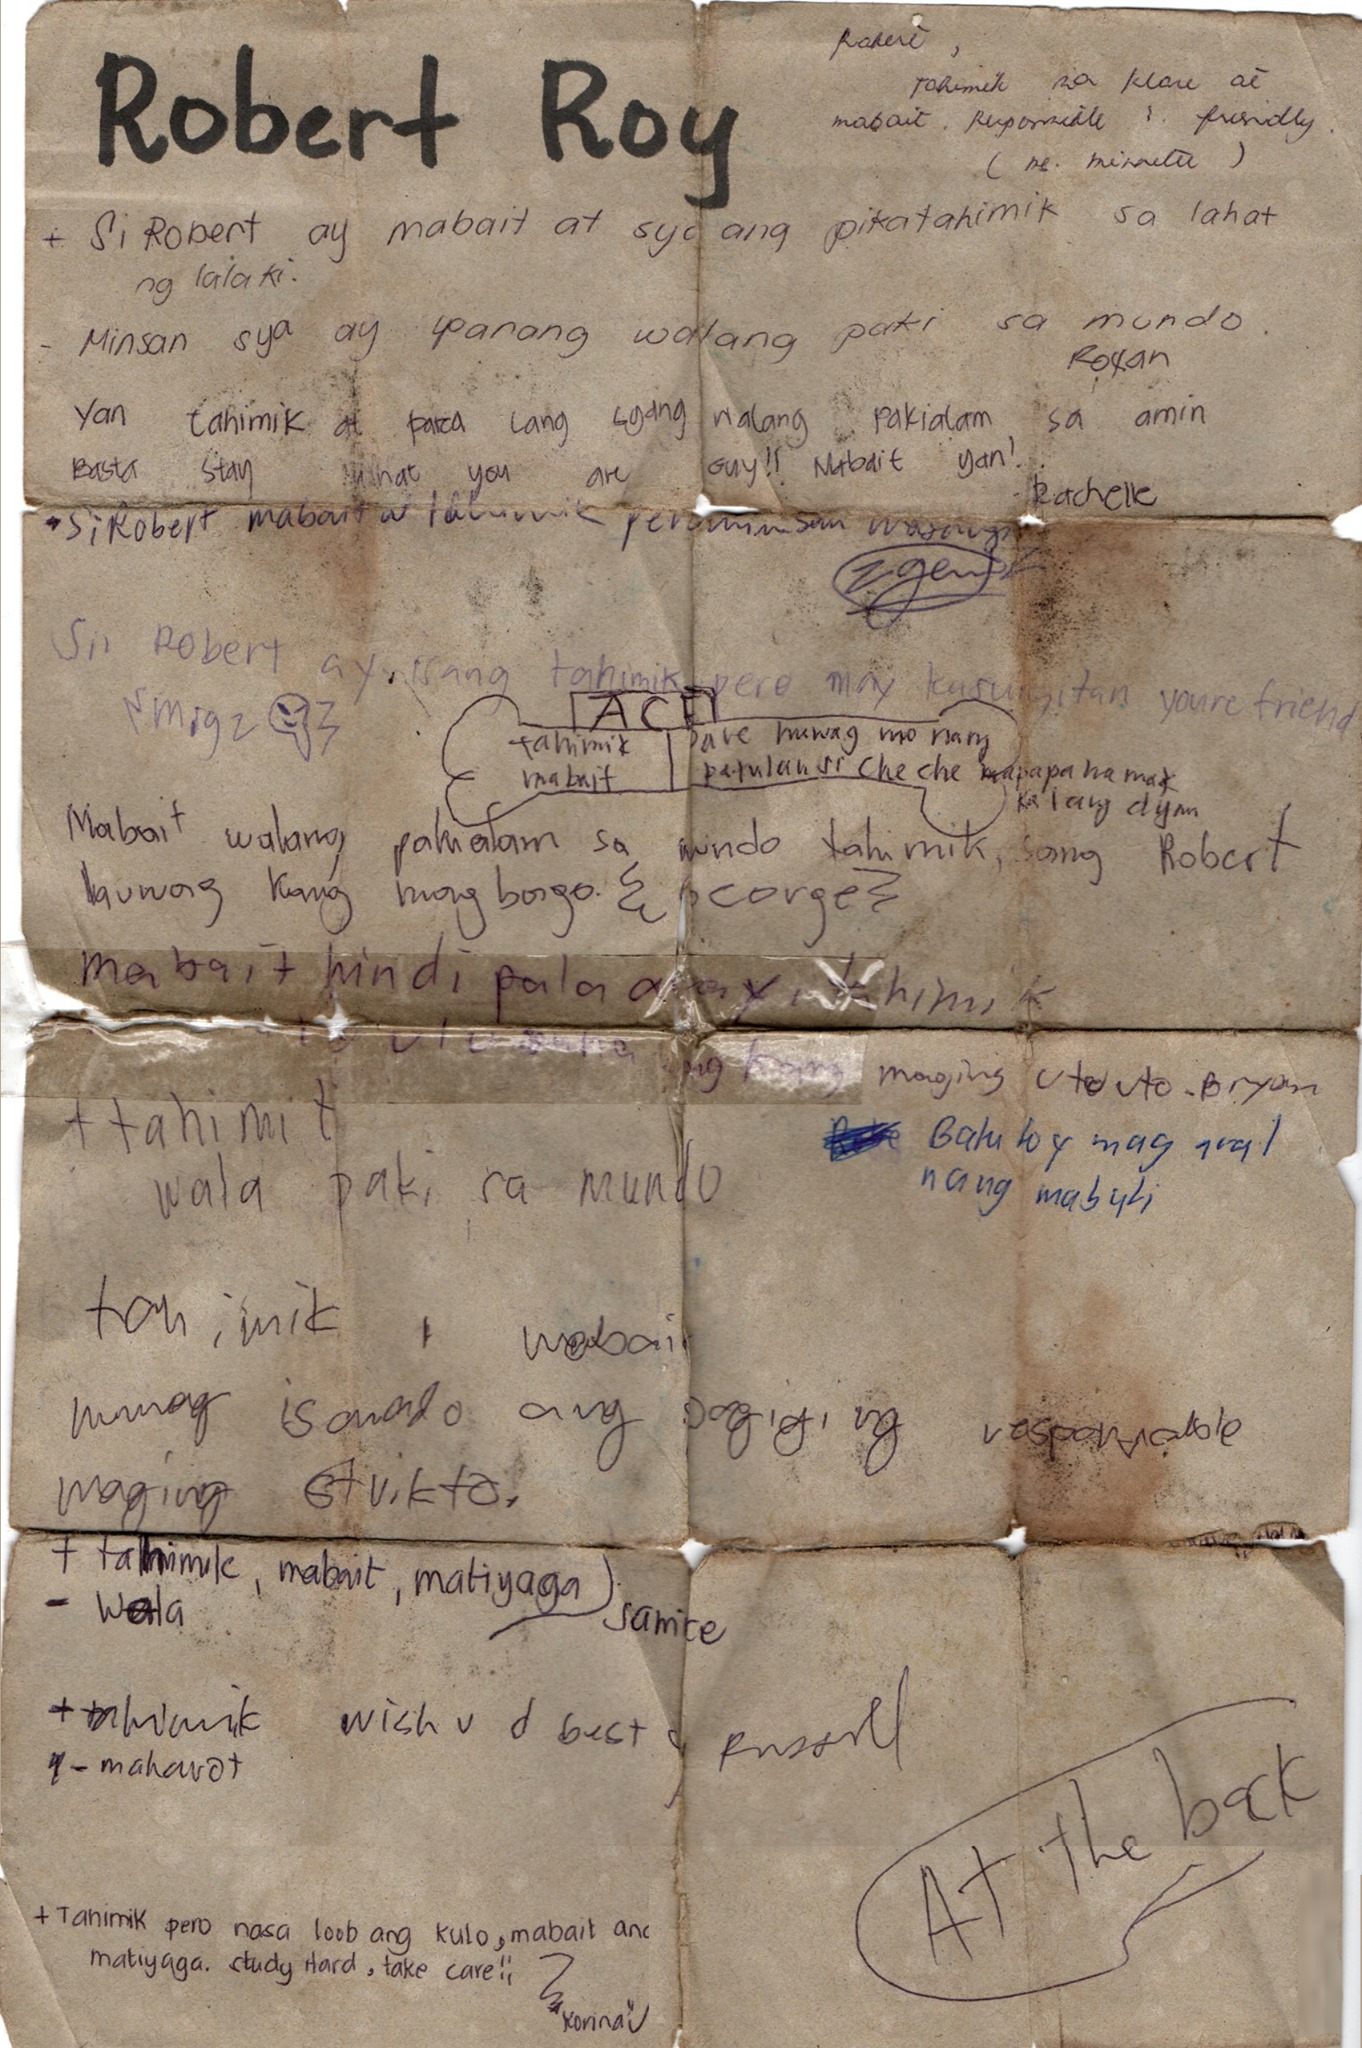 Robert Roy
Robert,
tahimik sa klase at
mabait. Responsible & friendly.
+ Si Robert ay mabait at sya ang pikatahimik sa lahat
ng lalaki.
- Minsan sya ay parang walang paki sa mundo.
Roxan
Yan tahimik at parca lang syang walang pakialam sa amin
Basta stay what you are Guy!! Mabait yan!
- Rachelle
Si Robert mabait tahimik pero minsan
Si Robert ay isang tahimik pero may kasungitan youre friend
{Migz}
ACE
tahimik
mabait
Dave huwag mo nang
patulan si che che mapapahamak
ka lang dyan
Mabait walang pakialam sa mundo tahimik, sang Robert
huwag kang magbago. {George}
mabait hindi pala away, tahimik
kang maging uto uto. Bryan
+ tahimik
wala paki sa mundo
Batuloy mag aral
nang mabuti
tahimik, mabait
ang pagiging
maging strikto.
+ tahimik, mabait, matiyaga
- wala
Samice
+ tahimik wish u d best
Russell
- maharot
At the back
+ Tahimik pero nasa loob ang kulo, mabait and
matiyaga. study Hard, take care!!
Korina